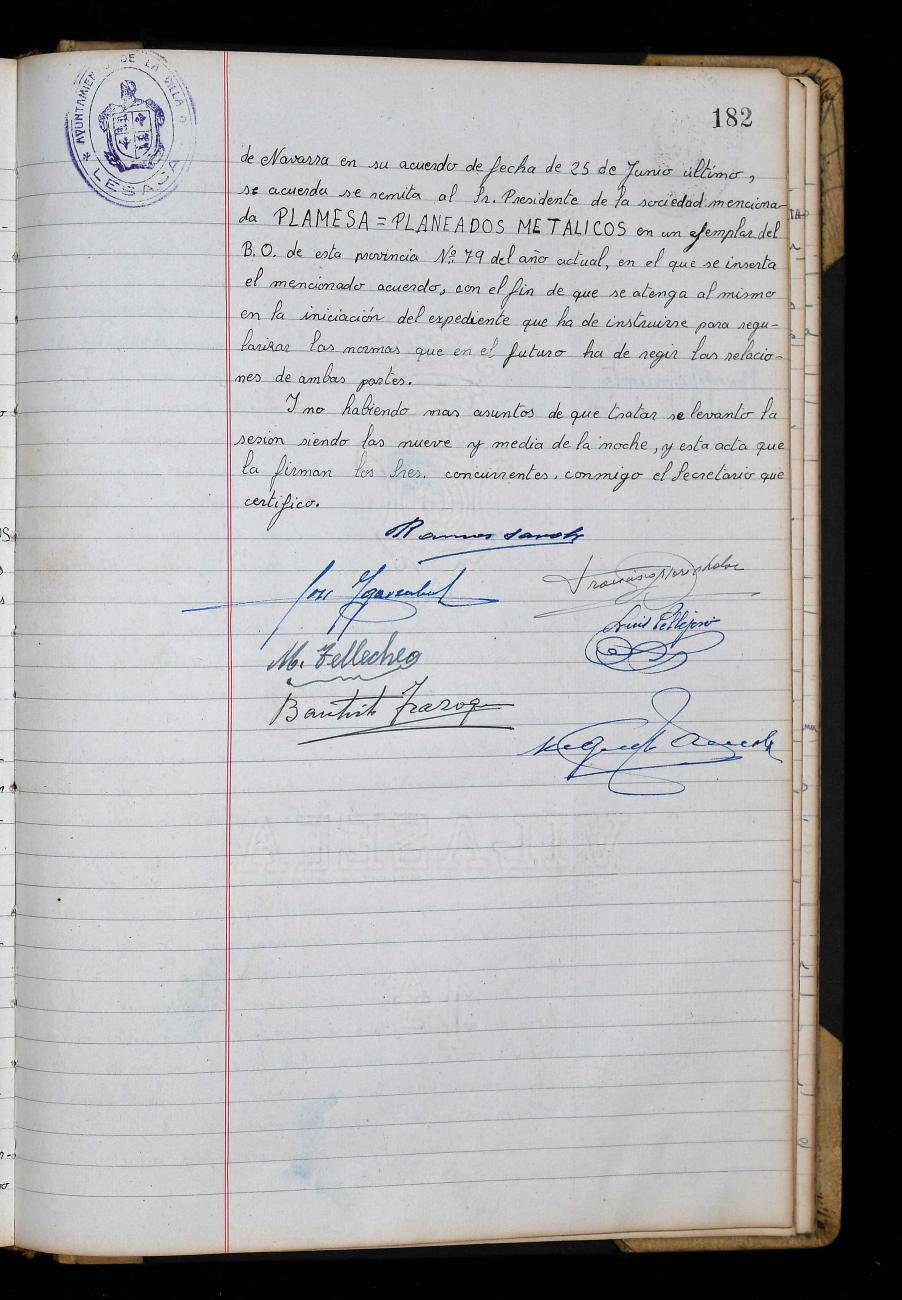 AYUNTAMIENTO DE LA VILLA D
LESACA
182
de Navarra en su acuerdo de fecha de 25 de Junio último,
se acuerda se remita al Sr. Presidente de la sociedad menciona-
da PLAMESA = PLANEADOS METALICOS en un ejemplar del
B.O. de esta provincia Nº 79 del año actual, en el que se inserta
el mencionado acuerdo, con el fin de que se atenga al mismo
en la iniciación del expediente que ha de instruirse para regu-
larizar las normas que en el futuro ha de regir las relacio-
nes de ambas partes.
Y no habiendo mas asuntos de que tratar se levanto la
sesión siendo las nueve y media de la noche, y esta acta que
la firman los Sres. concurrentes, conmigo el Secretario que
certifico.
Ramos
Francisco
Luis Pellejero
M. Tellechea
Bautista